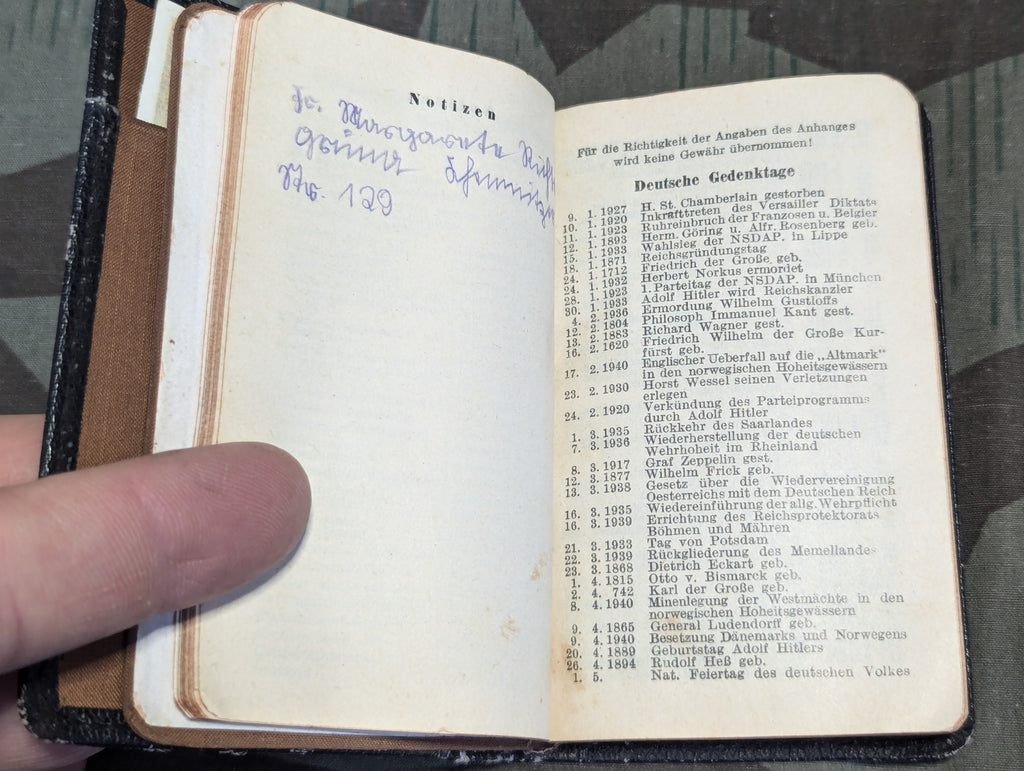 Notizen
Fr. Margarete
Grüna Chemnitzer
Str. 129
Für die Richtigkeit der Angaben des Anhanges
wird keine Gewähr übernommen!
Deutsche Gedenktage
9. 1. 1927 H. St. Chamberlain gestorben
10. 1. 1920 Inkrafttreten des Versailler Diktats
11. 1. 1923 Ruhreinbruch der Franzosen u. Belgier
12. 1. 1893 Herm. Göring u. Alfr. Rosenberg geb.
15. 1. 1933 Wahlsieg der NSDAP. in Lippe
18. 1. 1871 Reichsgründungstag
24. 1. 1712 Friedrich der Große geb.
24. 1. 1932 Herbert Norkus ermordet
28. 1. 1923 1. Parteitag der NSDAP. in München
30. 1. 1933 Adolf Hitler wird Reichskanzler
4. 2. 1936 Ermordung Wilhelm Gustloffs
12. 2. 1804 Philosoph Immanuel Kant gest.
13. 2. 1883 Richard Wagner gest.
16. 2. 1620 Friedrich Wilhelm der Große Kur-
fürst geb.
17. 2. 1940 Englischer Ueberfall auf die „Altmark"
in den norwegischen Hoheitsgewässern
23. 2. 1930 Horst Wessel seinen Verletzungen
erlegen
24. 2. 1920 Verkündung des Parteiprogramms
durch Adolf Hitler
1. 3. 1935 Rückkehr des Saarlandes
7. 3. 1936 Wiederherstellung der deutschen
Wehrhoheit im Rheinland
8. 3. 1917 Graf Zeppelin gest.
12. 3. 1877 Wilhelm Frick geb.
13. 3. 1938 Gesetz über die Wiedervereinigung
Oesterreichs mit dem Deutschen Reich
16. 3. 1935 Wiedereinführung der allg. Wehrpflicht
16. 3. 1939 Errichtung des Reichsprotektorats
Böhmen und Mähren
21. 3. 1933 Tag von Potsdam
22. 3. 1939 Rückgliederung des Memellandes
23. 3. 1868 Dietrich Eckart geb.
1. 4. 1815 Otto v. Bismarck geb.
2. 4. 742 Karl der Große geb.
8. 4. 1940 Minenlegung der Westmächte in den
norwegischen Hoheitsgewässern
9. 4. 1865 General Ludendorff geb.
9. 4. 1940 Besetzung Dänemarks und Norwegens
20. 4. 1889 Geburtstag Adolf Hitlers
26. 4. 1894 Rudolf Heß geb.
1. 5. Nat. Feiertag des deutschen Volkes